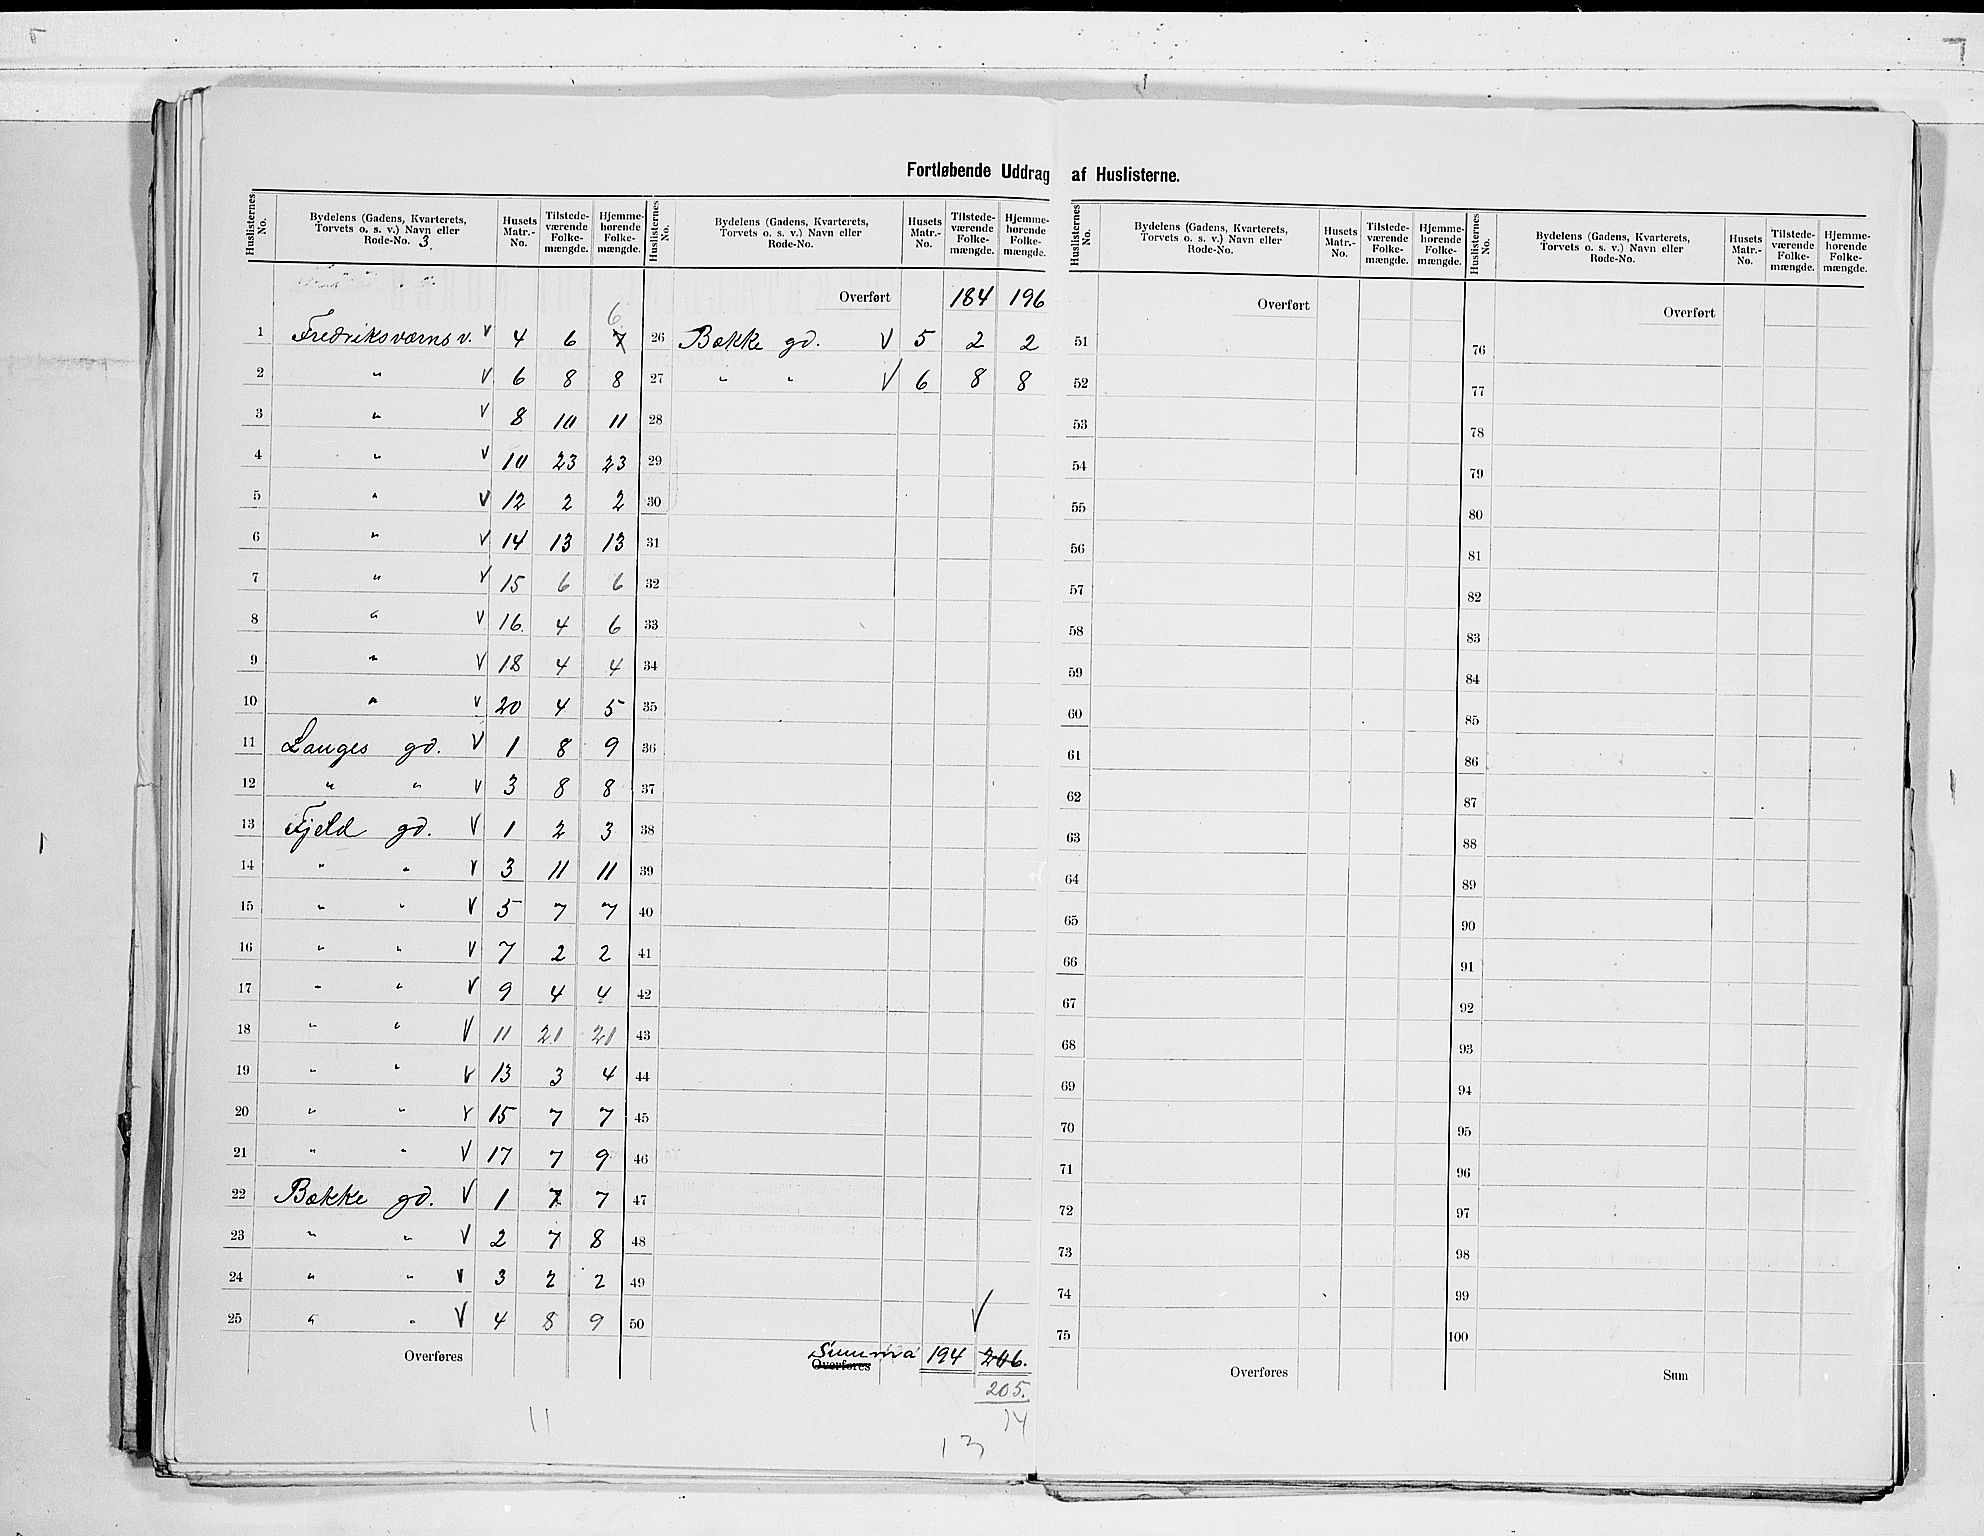 Fortløbende Uddrag af Huslisterne.
Huslisternes No. | Bydelens (Gadens, Kvarterets, Torvets o. s. v.) Navn eller Rode-No. 3. | Husets Matr.-No. | Tilstedeværende Folkemængde. | Hjemmehørende Folkemængde.
1 Fredriksværns v. V 4 6 7 6
2 " V 6 8 8
3 " V 8 10 11
4 " V 10 23 23
5 " V 12 2 2
6 " V 14 13 13
7 " V 15 6 6
8 " V 16 4 6
9 " V 18 4 4
10 " V 20 4 5
11 Langes gd. V 1 8 9
12 " " V 3 8 8
13 Fjeld gd. V 1 2 3
14 " " V 3 11 11
15 " " V 5 7 7
16 " " V 7 2 2
17 " " V 9 4 4
18 " " V 11 21 21
19 " " V 13 3 4
20 " " V 15 7 7
21 " " V 17 7 9
22 Bække gd. V 1 7 7
23 " " V 2 7 8
24 " " V 3 2 2
25 " " V 4 8 9
Overføres
11
Huslisternes No. | Bydelens (Gadens, Kvarterets, Torvets o. s. v.) Navn eller Rode-No. | Husets Matr.-No. | Tilstedeværende Folkemængde. | Hjemmehørende Folkemængde.
Overført 184 196
26 Bække gd. V 5 2 2
27 " " V 6 8 8
28
29
30
31
32
33
34
35
36
37
38
39
40
41
42
43
44
45
46
47
48
49
50
V
Overføres Summa 194 206.
205.
14
13
Huslisternes No. | Bydelens (Gadens, Kvarterets, Torvets o. s. v.) Navn eller Rode-No. | Husets Matr.-No. | Tilstedeværende Folkemængde. | Hjemmehørende Folkemængde.
Overført
51
52
53
54
55
56
57
58
59
60
61
62
63
64
65
66
67
68
69
70
71
72
73
74
75
Overføres
Huslisternes No. | Bydelens (Gadens, Kvarterets, Torvets o. s. v.) Navn eller Rode-No. | Husets Matr.-No. | Tilstedeværende Folkemængde. | Hjemmehørende Folkemængde.
Overført
76
77
78
79
80
81
82
83
84
85
86
87
88
89
90
91
92
93
94
95
96
97
98
99
100
Sum